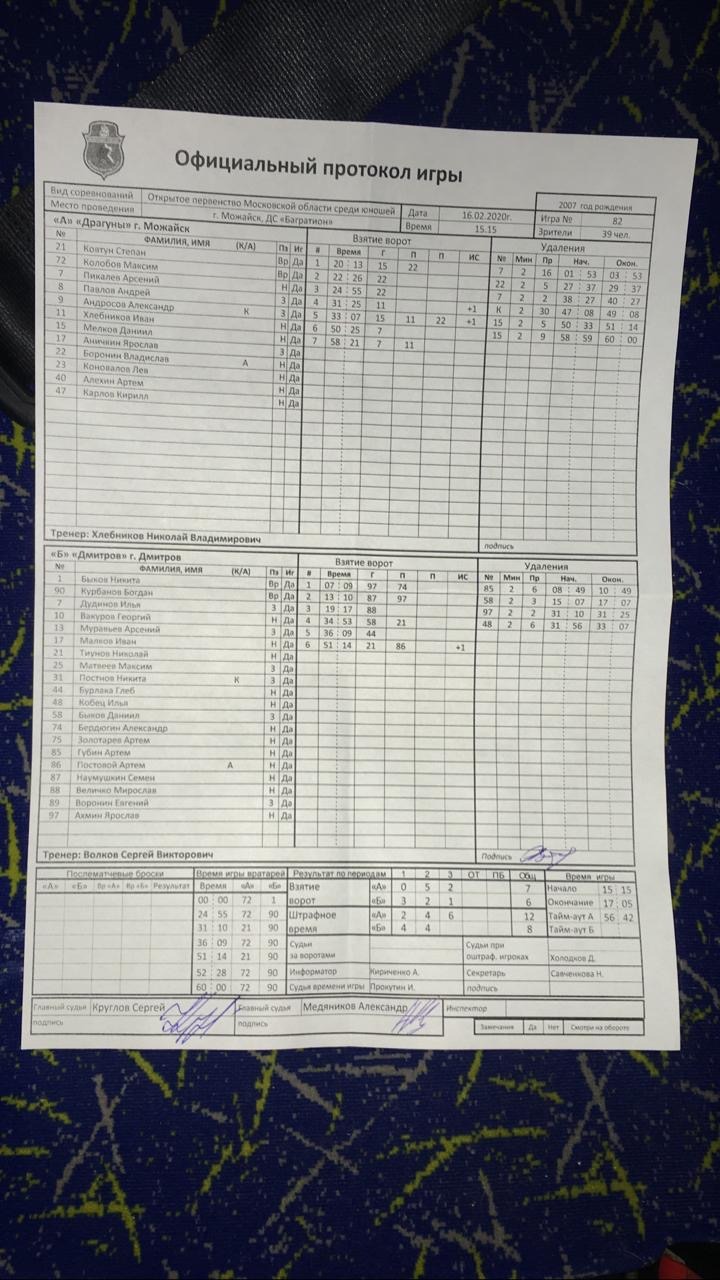 Официальный протокол игры
Вид соревнований Открытое первенство Московской области среди юношей Дата 16.02.2020г. 2007 год рождения
Место проведения г. Можайск, ДС «Багратион» Время 15.15 Игра № 82
Зрители 39 чел.
«А» «Драгуны» г. Можайск Взятие ворот Удаления
№ ФАМИЛИЯ, ИМЯ (К/А) Пз Иг # Время Г П П ИС № Мин Пр Нач. Окон.
21 Ковтун Степан Вр Да 1 20 : 13 15 22 7 2 16 01 : 53 03 : 53
72 Колобов Максим Вр Да 2 22 : 26 22 22 2 5 27 : 37 29 : 37
7 Пикалев Арсений Н Да 3 24 : 55 22 7 2 2 38 : 27 40 : 27
8 Павлов Андрей З Да 4 31 : 25 11 +1 К 2 30 47 : 08 49 : 08
9 Андросов Александр К З Да 5 33 : 07 15 11 22 +1 15 2 5 50 : 33 51 : 14
11 Хлебников Иван Н Да 6 50 : 25 7 15 2 9 58 : 59 60 : 00
15 Мелков Даниил Н Да 7 58 : 21 7 11
17 Аничкин Ярослав З Да
22 Боронин Владислав А Н Да
23 Коновалов Лев Н Да
40 Алехин Артем Н Да
47 Карлов Кирилл Н Да
Тренер: Хлебников Николай Владимирович подпись
«Б» «Дмитров» г. Дмитров Взятие ворот Удаления
№ ФАМИЛИЯ, ИМЯ (К/А) Пз Иг # Время Г П П ИС № Мин Пр Нач. Окон.
1 Быков Никита Вр Да 1 07 : 09 97 74 85 2 6 08 : 49 10 : 49
90 Курбанов Богдан Вр Да 2 13 : 10 87 97 58 2 3 15 : 07 17 : 07
7 Дудинов Илья З Да 3 19 : 17 88 97 2 2 31 : 10 31 : 25
10 Вакуров Георгий Н Да 4 34 : 53 58 21 48 2 6 31 : 56 33 : 07
13 Муравьев Арсений З Да 5 36 : 09 44
17 Малков Иван Н Да 6 51 : 14 21 86 +1
21 Тиунов Николай Н Да
25 Матвеев Максим З Да
31 Постнов Никита К З Да
44 Бурлака Глеб Н Да
48 Кобец Илья Н Да
58 Быков Даниил З Да
74 Бердюгин Александр Н Да
75 Золотарев Артем Н Да
85 Губин Артем Н Да
86 Постовой Артем А Н Да
87 Наумушкин Семен Н Да
88 Величко Мирослав Н Да
89 Воронин Евгений З Да
97 Ахмин Ярослав Н Да
Тренер: Волков Сергей Викторович Подпись
Послематчевые броски Время игры вратарей Результат по периодам 1 2 3 ОТ ПБ Общ Время игры
«А» «Б» Вр «А» Вр «Б» Результат Время «А» «Б» Взятие «А» 0 5 2 7 Начало 15 15
00 : 00 72 1 ворот «Б» 3 2 1 6 Окончание 17 05
24 : 55 72 90 Штрафное «А» 2 4 6 12 Тайм-аут А 56 42
31 : 10 21 90 время «Б» 4 4 8 Тайм-аут Б
36 : 09 72 90 Судьи Судьи при
51 : 14 21 90 за воротами оштраф. игроках Холодков Д.
52 : 28 72 90 Информатор Кириченко А. Секретарь Савченкова Н.
60 : 00 72 90 Судья времени игры Прокутин И. подпись
Главный судья Круглов Сергей Главный судья Медяников Александр Инспектор
подпись подпись Замечания Да Нет Смотри на обороте